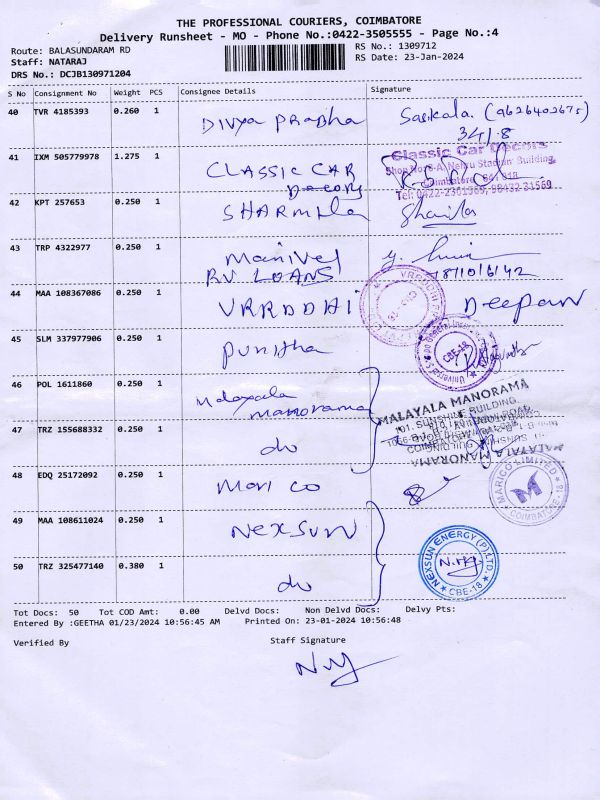 THE PROFESSIONAL COURIERS, COIMBATORE
Delivery Runsheet - MO - Phone No.:0422-3505555 - Page No.:4
Route: BALASUNDARAM RD
RS No.: 1309712
Staff: NATARAJ
RS Date: 23-Jan-2024
DRS No.: DCJB130971204
S No Consignment No Weight PCS Consignee Details Signature
40 TVR 4185393 0.260 1 Divya Prabha Sasikala. (9626402675)
341.8
41 IXM 505779978 1.275 1 CLASSIC CAR Decors
Classic Car Decors
Shop No.8-A, Nehru Stadium Building,
Coimbatore - 641 018
Tel: 0422-2301569, 98432 31569
42 KPT 257653 0.250 1 SHARMILA
43 TRP 4322977 0.250 1 Manivel
RV LOANS
44 MAA 108367086 0.250 1 VRRDDHI Deepan
45 SLM 337977906 0.250 1 Punitha
CBE-18
46 POL 1611860 0.250 1 Malayala
Manorama
MALAYALA MANORAMA
101, SUNSHINE BUILDING,
47 TRZ 155688332 0.250 1 do
MALAYALA MANORAMA
48 EDQ 25172092 0.250 1 Mari co
MARICO LIMITED
COIMBATORE-18
49 MAA 108611024 0.250 1 NEXSUN
NEXSUN ENERGY (P) LTD.
CBE-18
50 TRZ 325477140 0.380 1 do
Tot Docs: 50 Tot COD Amt: 0.00 Delvd Docs: Non Delvd Docs: Delvy Pts:
Entered By :GEETHA 01/23/2024 10:56:45 AM Printed On: 23-01-2024 10:56:48
Verified By Staff Signature